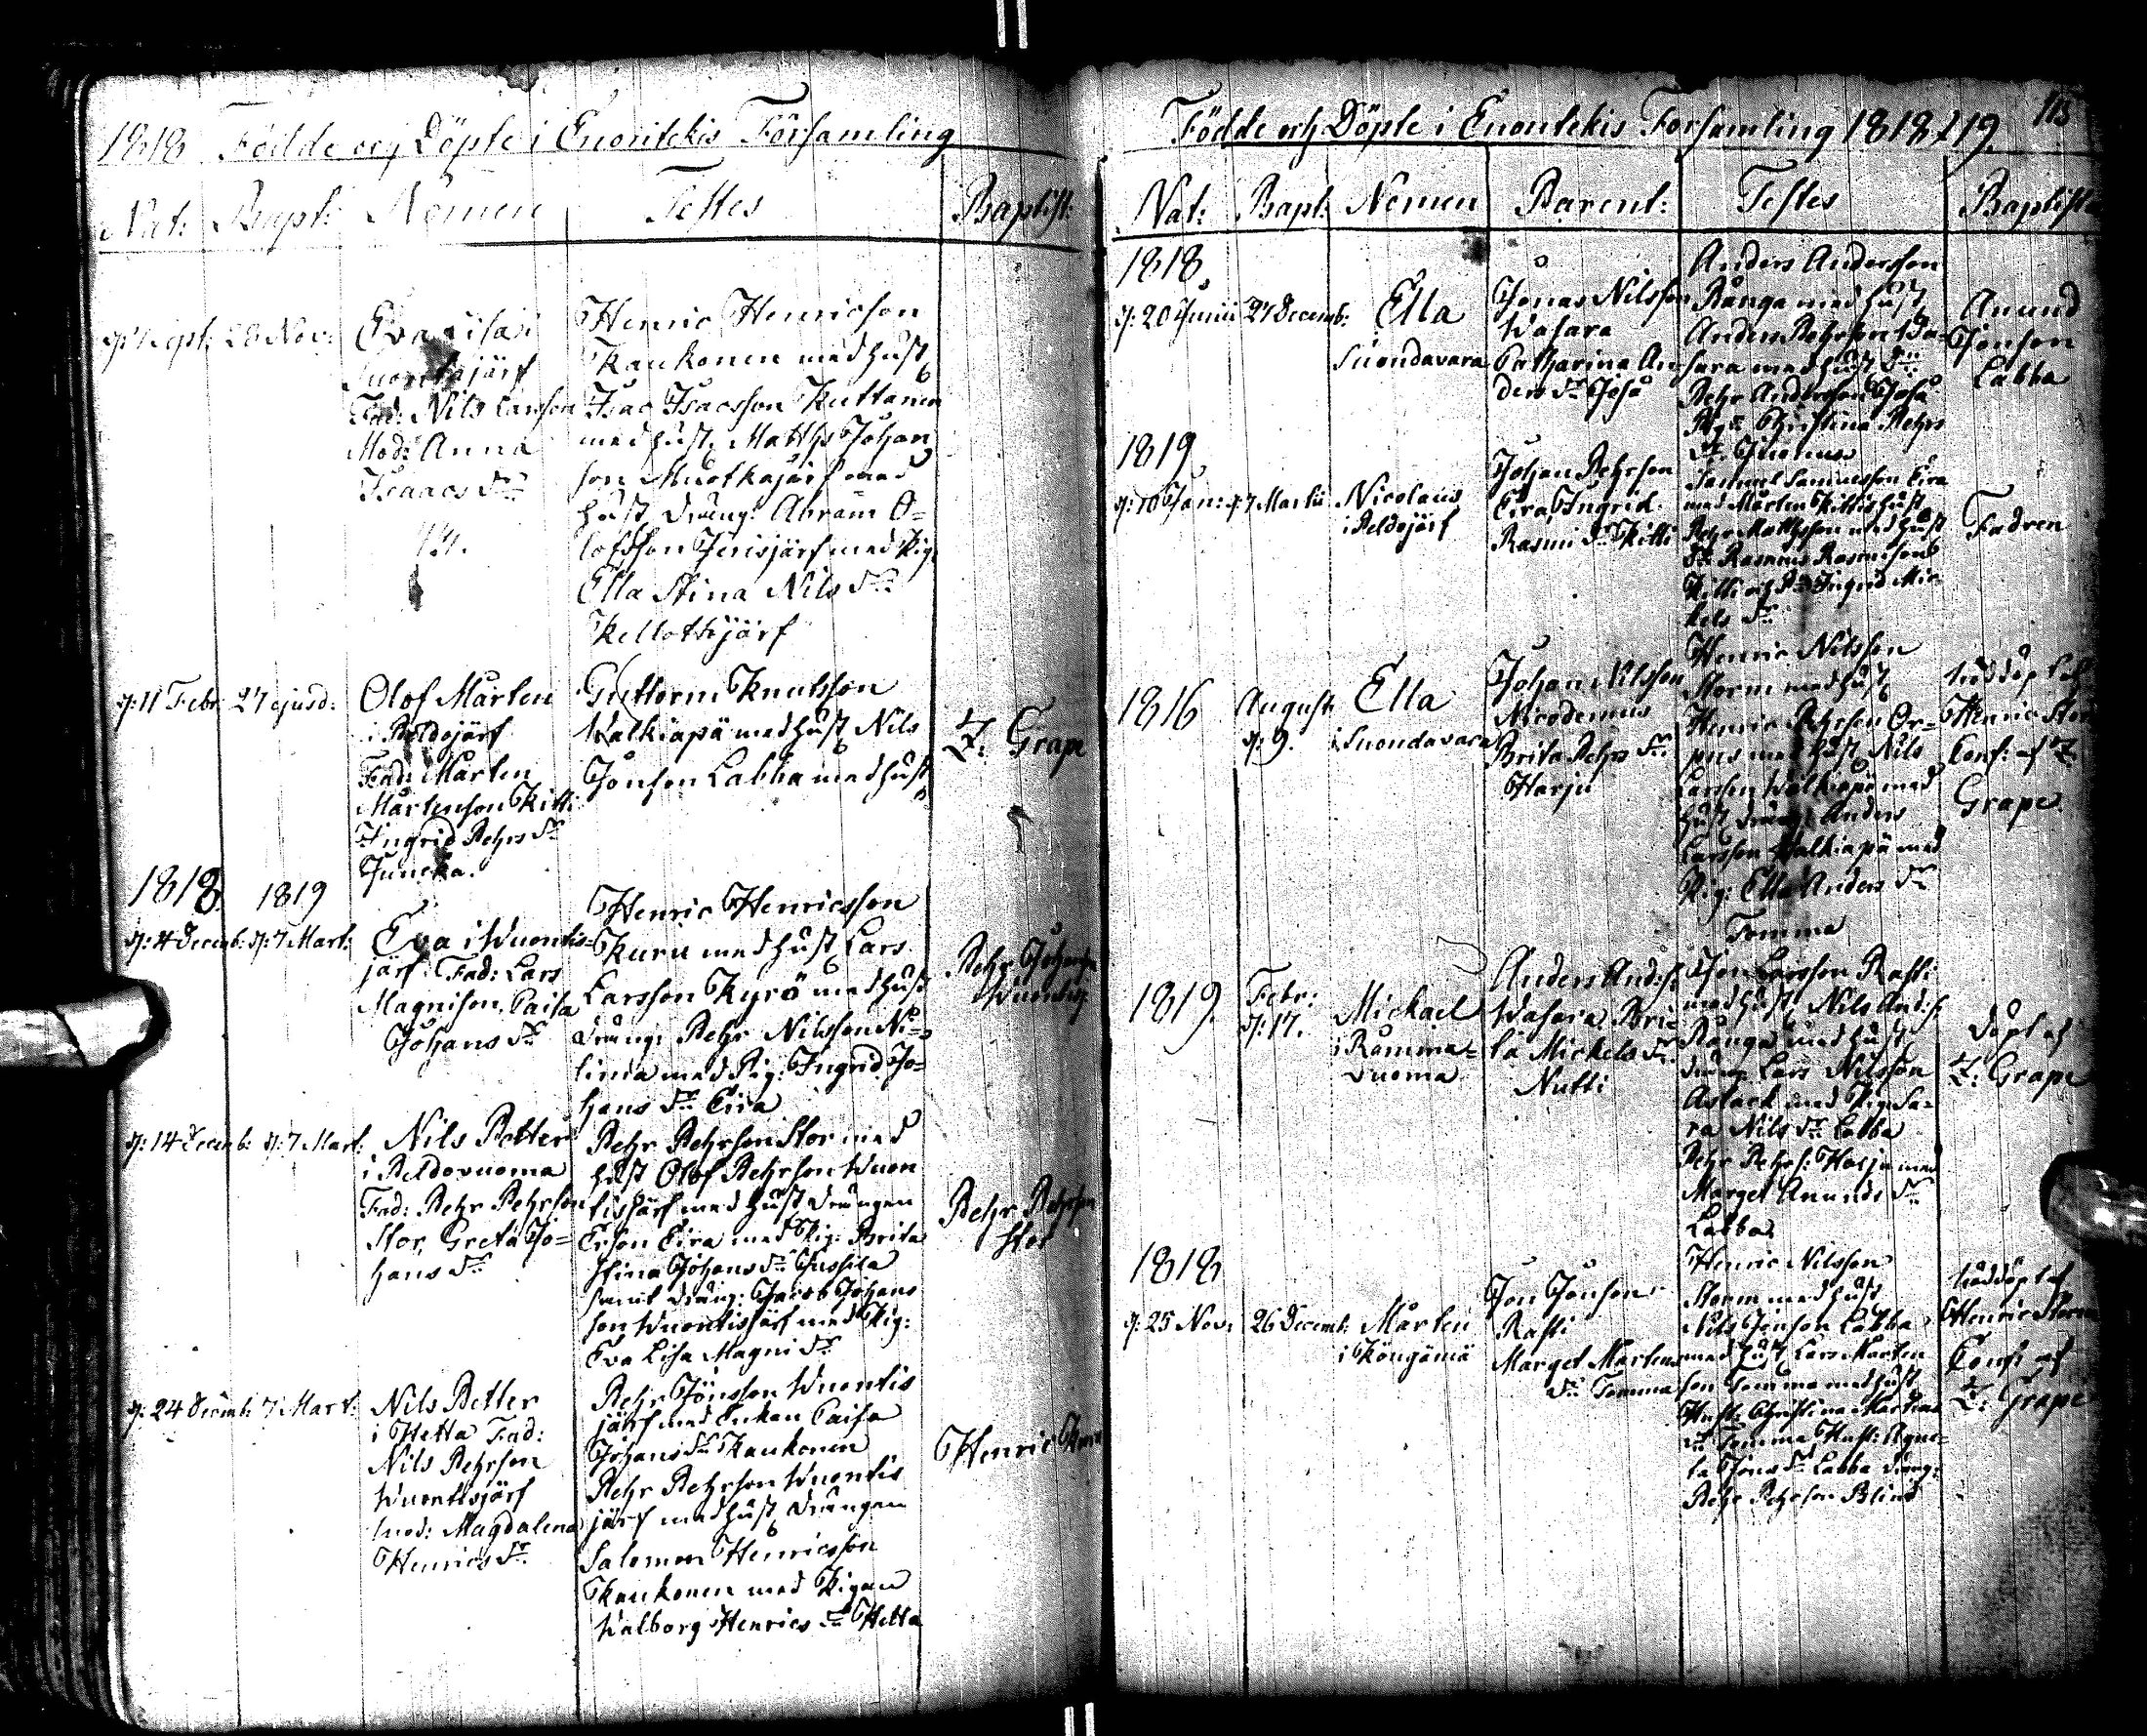 1818 Födde och Döpte i Enontekis Församling
Nat: Bapt: Nomen Testes Baptist:
28 Nov: Eva Lisa i
järf
Fad: Nils Larsson
Mod: Anna
Isaacs Dr
Henric Henricson
Kaukonen med hust
Isac Isacsson Kuttanen
med hust. Matths Johan
son Muotkajärf med
hust dräng: Abram O=
lofsson Jerisjärf med Pig:
Ella Stina Nils Dr
Kellottijärf
d: 11 Febr 27 ejusd: Olof Mårten
i Peldojärf
Fad: Mårten
Mårtenson Kitti
Ingrid Pehrs Dr
Juncka.
Guttorm Knutsson
Walkiapä med hust Nils
Jonson Labba med hust
Z: Grape
1818 1819
d: 4 Decemb: d: 7 Mart: Eva i Wuontis=
järf Fad: Lars
Magnison, Caisa
Johans Dr
Henric Henricsson
Kuru med hust Lars
Larsson Kyrö med hust
dräng: Pehr Nilsson Ni=
lima med Pig: Ingrid Jo=
hans Dr Eira
Pehr
d: 14 Decemb: d: 7 Mart: Nils Petter
i Peldovuoma
Fad: Pehr Pehrson
Stor, Greta Jo=
hans Dr
Pehr Pehrson Stor med
hust Olof Pehrson Wuon
tisjärf med hust drängen
Erson Eira med Pig: Brita
Stina Johans Dr
samt dräng: Jacob Johans
son Wuontisjärf med Pig:
Eva Lisa Magni Dr
Pehr Pehrson
Stor
d: 24 Decemb: 7 Mart: Nils Petter
i Hetta Fad:
Nils Pehrson
Wuontisjärf
Mod: Magdalena
Henrics Dr.
Pehr Jönsson Wuontis
järf med Enkan Caisa
Johans Dr Kaukonen
Pehr Pehrson Wuontis
järf med hust, drängen
Salomon Henricsson
Kaukonen med Pigan
Walborg Henrics Dr Hetta
Henric
Födde och Döpte i Enontekis Församling 1818 & 19. 115
Nat: Bapt: Nomen Parent: Testes Baptista
1818
d: 20 Junii 27 Decemb: Ella
i
Suondavara
Jonas Nilsson
Wasara
Catharina An
ders Dr Josa
Anders Andersson
Ranga med hust
Anders Pehrson Wa=
sara med hust Dr
Pehr Andersson Josa
Pig: Christina Pehrs
Dr
Amund
Jonson
Labba
1819
d: 10 Jan: d: 7 Martii Nicolaus
i Peldojärf
Johan Pehrson
Eira, Ingrid
Rasmi Dr Kitti
Samuel Samuelsson Eira
med Mårten Kittis hust
Pehr Matthsson med hust
Dr Rasmus Rasmisson
Kitti och Pig Ingrid Mic
kels Dr
Fadren
1816 August: Ella
d: 9. i Suondavara
Johan Nilsson
Nicodemus
Brita Pehrs Dr
Harju
Henric Nilsson
Storm med hust
Henric Pehrson Or=
pus med hust Nils
Larsson Walkiapä med
hust dräng: Anders
Larsson Walkiapä med
Pig: Ella Anders Dr
Tomma
nöddöpt af
Henric Storm
Conf: af Z.
Grape
1819. Febr:
d: 17. Michael
i Ramma=
vuoma
Anders And:s:
Wasara, Bri=
ta Mickels Dr.
Nutti
Jon Larsson Rasti
med hust, Nils And:s:
Ranga med hust
dräng Lars Nilsson
Aslack med Pig: Sa=
ra Nils Dr: Labba
Pehr Pehrs: Harju med
Marget Amunds Dr
Labba.
döpt af
Z: Grape
1818
d: 25 Nov: 26 Decemb: Mårten
i Köngämä
Jon Jonson
Rasti
Marget Mårtens
Dr Tomma
Henric Nilsson
Storm med hust
Nils Jonson Labba
med hust, Lars Mårten
son Tomma med hust
Hust: Christina Mårtens
Dr Tomma Hust: Agne=
ta Jons Dr Labba dräng:
Pehr Pehrson Blind
nöddöpt af
Henric Storm
Conf: af
Z: Grape